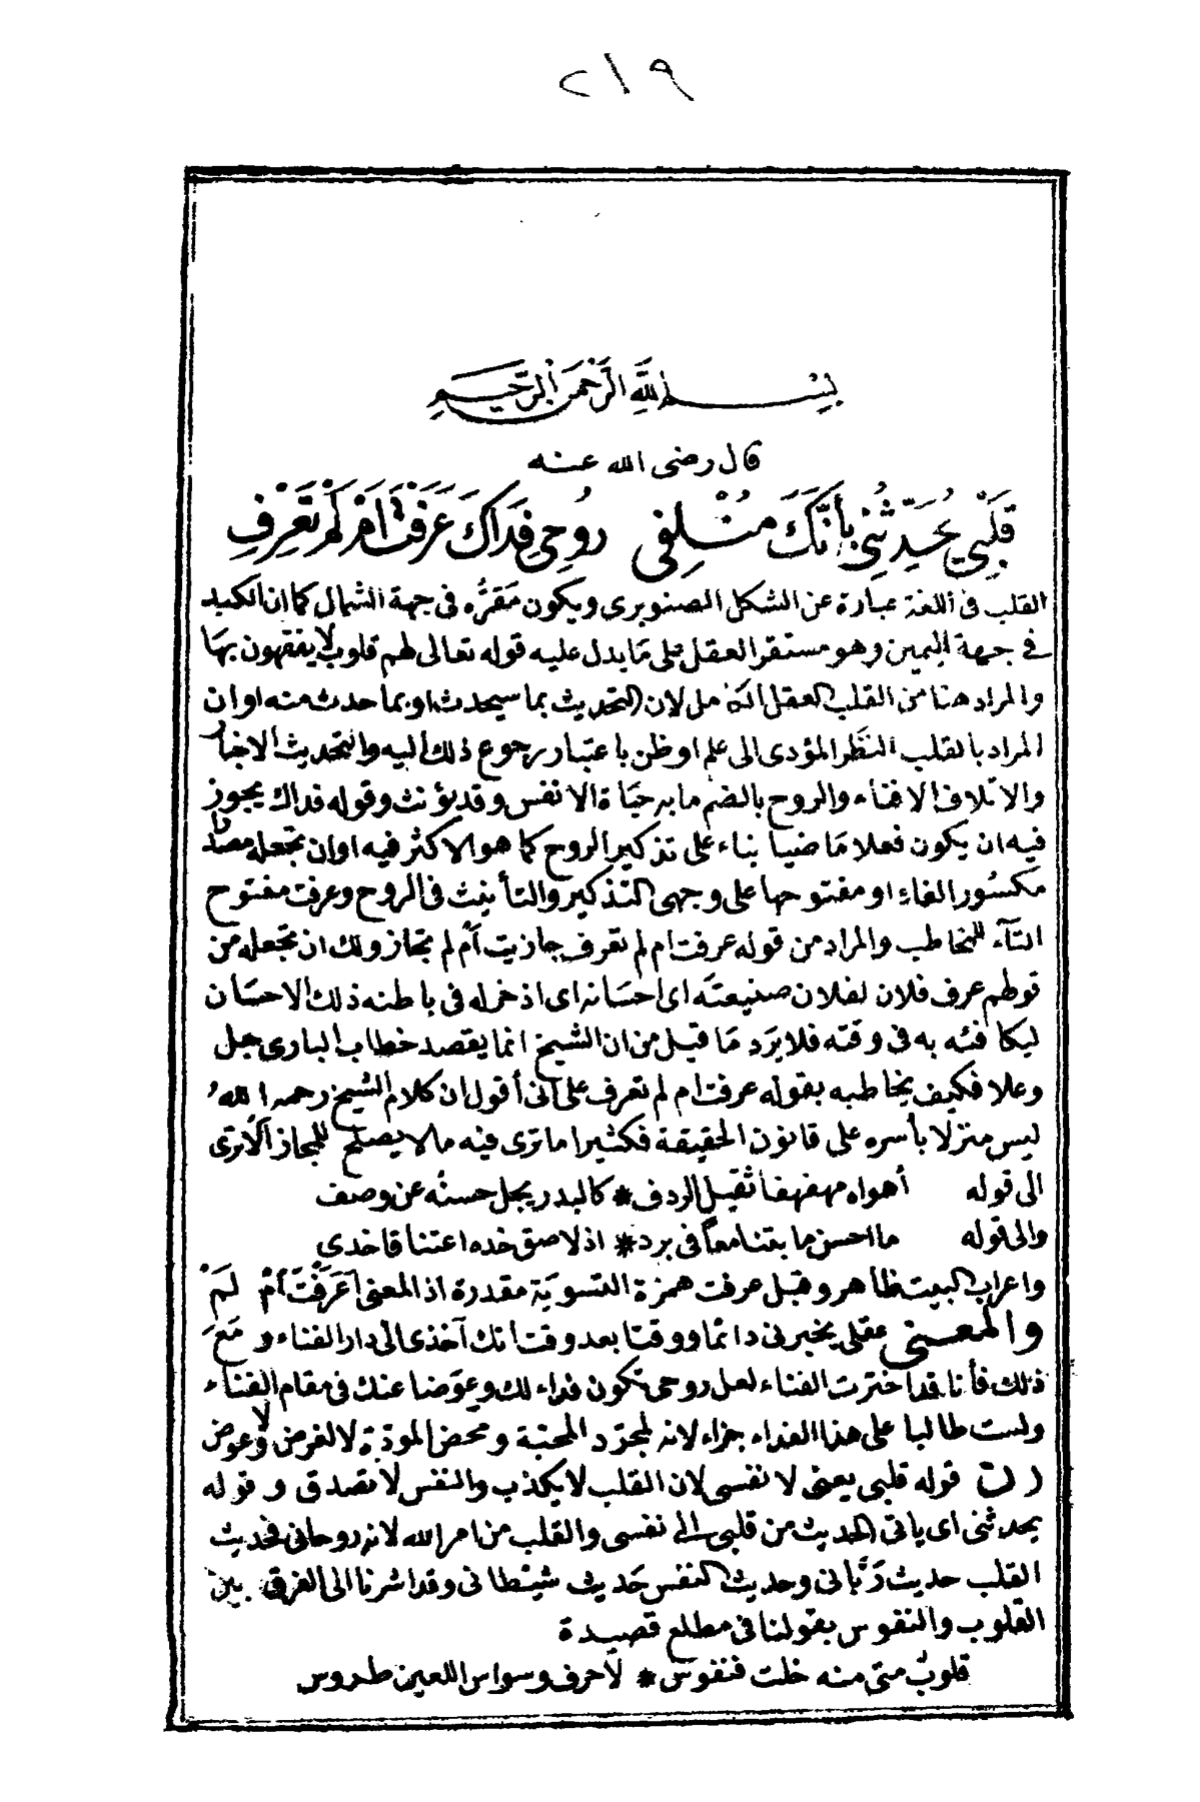 ٢١٩
بسم الله الرحمن الرحيم
قال رضى الله عنه
قَلْبِي يُحَدِّثُنِي بِأَنَّكَ مُتْلِفِي رُوحِى فِدَاكَ عَرَفْتَ أَمْ لَمْ تَعْرِفِ
القلب فى اللغة عبارة عن الشكل الصنوبرى ويكون مَقرُّه فى جهة الشمال كما ان الكبد
فى جهة اليمين وهو مستقر العقل على مَا يدل عليه قوله تعالى لهم قلوب لا يفقهون بهَا
والمراد هنا من القلب العقل الكامل لان التحديث بما سيحدث او بما حدث منه او ان
المراد بالقلب النظَر المؤدى الى علم او ظن باعتبار رجوع ذلك اليه والتحديث الاخبار
والاتلاف الافناء والروح بالضم ما به حيَاة الانفس وقد يؤنث وقوله فداك يجوز
فيه ان يكون فعلا مَاضيا بناء على تذكير الروح كما هو الاكثر فيه او ان تجعله مصدرا
مكسُور الفاءِ او مفتوحها على وجهى التذكير والتأنيث فى الروح وعرفت مفتوح
التآء للمخاطب والمراد من قوله عرفت ام لم تعرف جازيت أم لم تجاز ولك ان تجعله من
قولهم عرف فلان لفلان صنيعتَه اى احسَانه اى اذخر له فى باطنه ذلك الاحسَان
ليكافئه به فى وقته فلا يَرَد مَا قيل من ان الشيخ انما يقصد خطاب البارى جل
وعلا فكيف يخاطبه بقوله عرفت ام لم تعرف على انى أقول ان كلام الشيخ رحمه اللهُ
ليس منزلا بأسره على قانون الحقيقة فكثيرا ما ترى فيه ما لا يصلح للمجاز ألا ترى
الى قوله أهواه مهفهفا ثقيل الردف * كالبدر يجل حسنُه عن وصف
والى قوله ما احسن ما بتنا معاً فى برد * اذ لاصق خده اعتناقا خدى
واعراب البيت ظاهر وقبل عرفت همزة التسويَة مقدرة اذ المعنى أَعَرَفْتَ أمْ لَمْ
والمعـنى عقلى يخبرنى دائما ووقتا بعد وقت انك آخذى الى دار الفناء ومَعَ
ذلك فأنا قد اخترت الفناء لعل روحى تكون فداء لك وعوَضا عنك فى مقام الفناء
ولست طالبا على هذا الفداء جزاء لانه لمجرّد المحبّة ومحض المودّة لا لغرض ولا عوض
(ن) قوله قلبى يعنى لا نفسى لان القلب لا يكذب والنفس لا تصدق وقوله
يحدثنى اى ياتى الحديث من قلبى الى نفسى والقلب من امر الله لانه روحانى فحديث
القلب حديث رَبَّانى وحديث النفس حَديث شيْطانى وقد اشرنا الى الفرق بين
القلوب والنفوس بقولنا فى مطلع قصيدة
قلوبٌ متى منه خلت فنفوس * لأحرف وسواس اللعين طروس